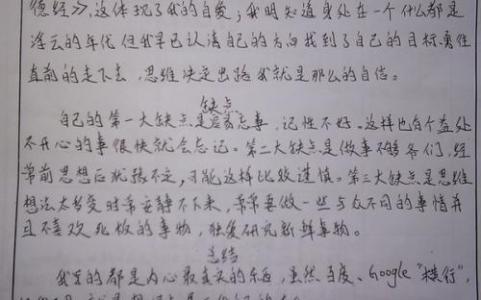 德经》,这体现了我的自爱;我明知道身处在一个什么都是
浮云的年代但我早已认清自己的方向找到了自己的目标,勇往
直前的走下去,思维决定出路我就是那么的自信。
缺点
自己的第一大缺点是容易忘事,记性不好。这样也有个益处
不开心的事很快就会忘记。第二大缺点是做事不够爷们,经
常前思想后犹豫不定,可能这样比较谨慎。第三大缺点是思维
想法太多变时常安静不下来,常常要做一些与众不同的事情并
且不喜欢死板的事物,独爱研究新鲜事物。
总结
我写的都是内心最真实的东西,虽然百度、Google "横行",